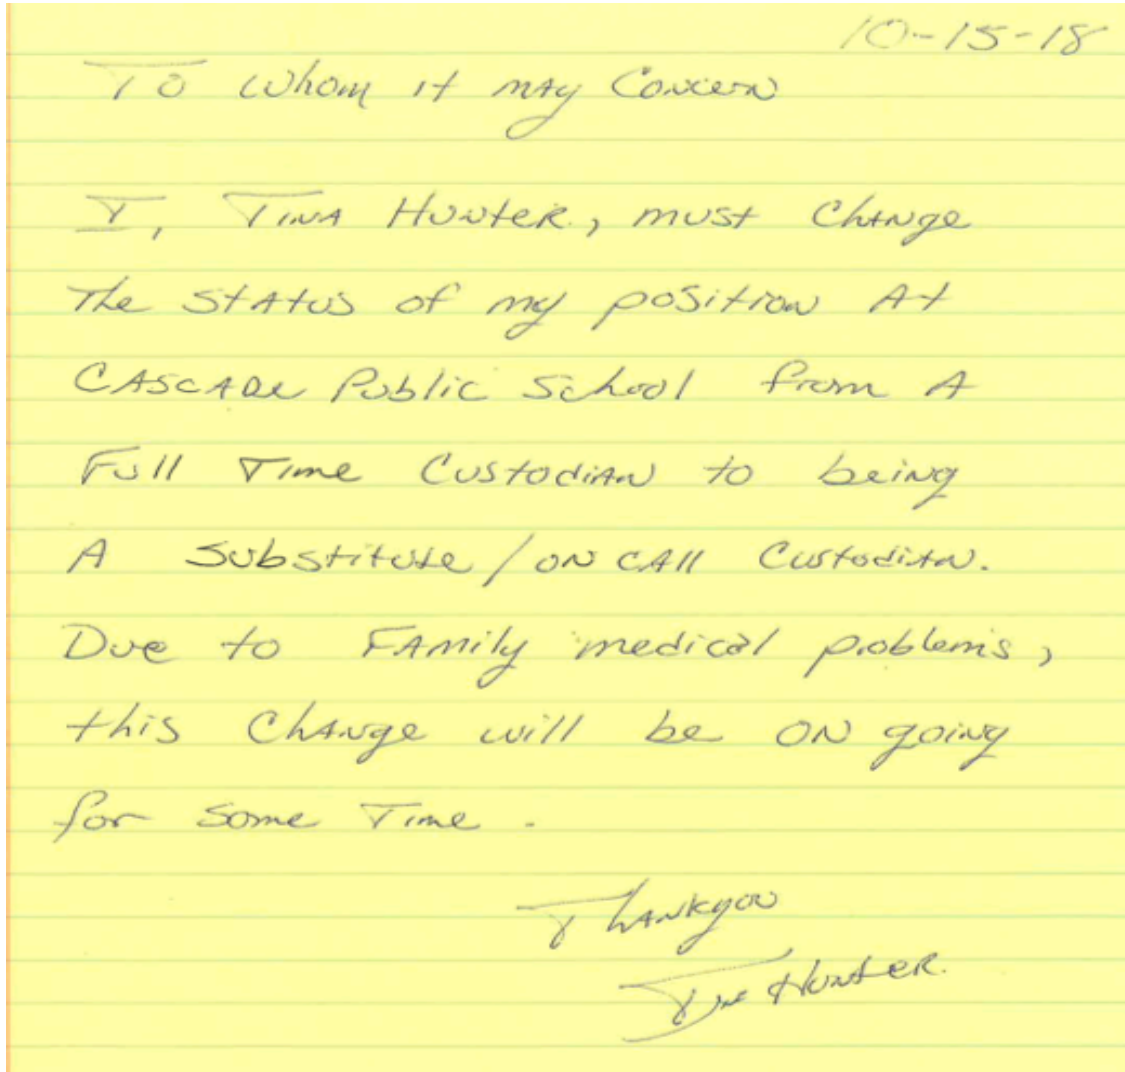 10-15-18
To Whom it may Concern
I, Tina Hunter, must change
The status of my position At
Cascade Public School from A
Full Time Custodian to being
A Substitute/on call Custodian.
Due to Family medical problems,
this Change will be on going
for some Time.
Thankyou
Tina Hunter